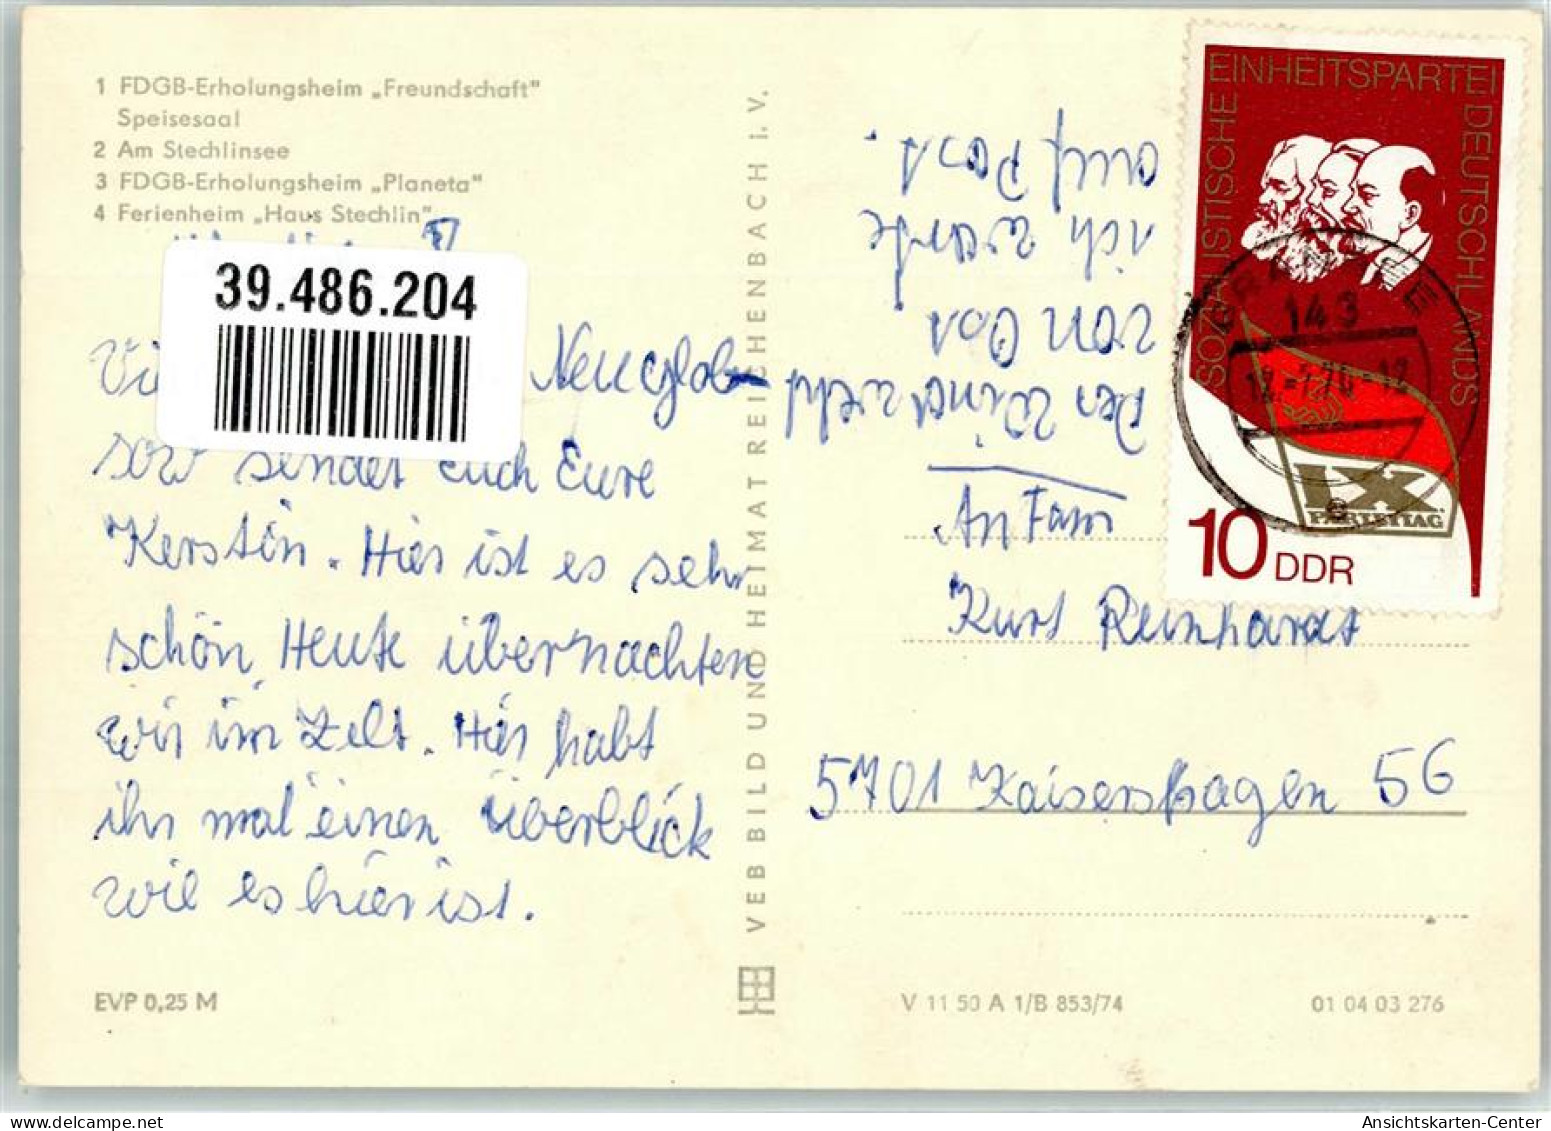 1 FDGB-Erholungsheim „Freundschaft"
Speisesaal
2 Am Stechlinsee
3 FDGB-Erholungsheim „Planeta"
4 Ferienheim „Haus Stechlin"
39.486.204
Neuglob-
sow sendet Euch Eure
Kerstin. Hier ist es sehr
schön, Heute übernachten
wir im Zelt. Hier habt
ihr mal einen Überblick
wie es hier ist.
EVP 0,25 M
VEB BILD UND HEIMAT REICHENBACH I. V.
Der Wind weht
von Ost
ich warte
auf Post.
An Fam
Kurt Reinhardt
5701 Kaisershagen 56
V 11 50 A 1/B 853/74
01 04 03 276
SOZIALISTISCHE EINHEITSPARTEI DEUTSCHLANDS
IX.
PARTEITAG
10 DDR
143
Ansichtskarten-Center